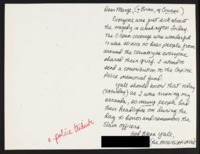 Dear Marge, (+ Brian, of Course)
Everyone was just sick about
the tragedy in Washington Friday.
The C-Span coverage was wonderful.
It was so nice to hear people from
around the country
shared their grief. I intend to
send a contribution to the Capitol
Police memorial fund.
Y'all should know that today
(Saturday) as I was running my
errands, so many people had
their headlights on during the
day to honor and remember the
slain officers.
God Bless Y'all,
a. police tribute